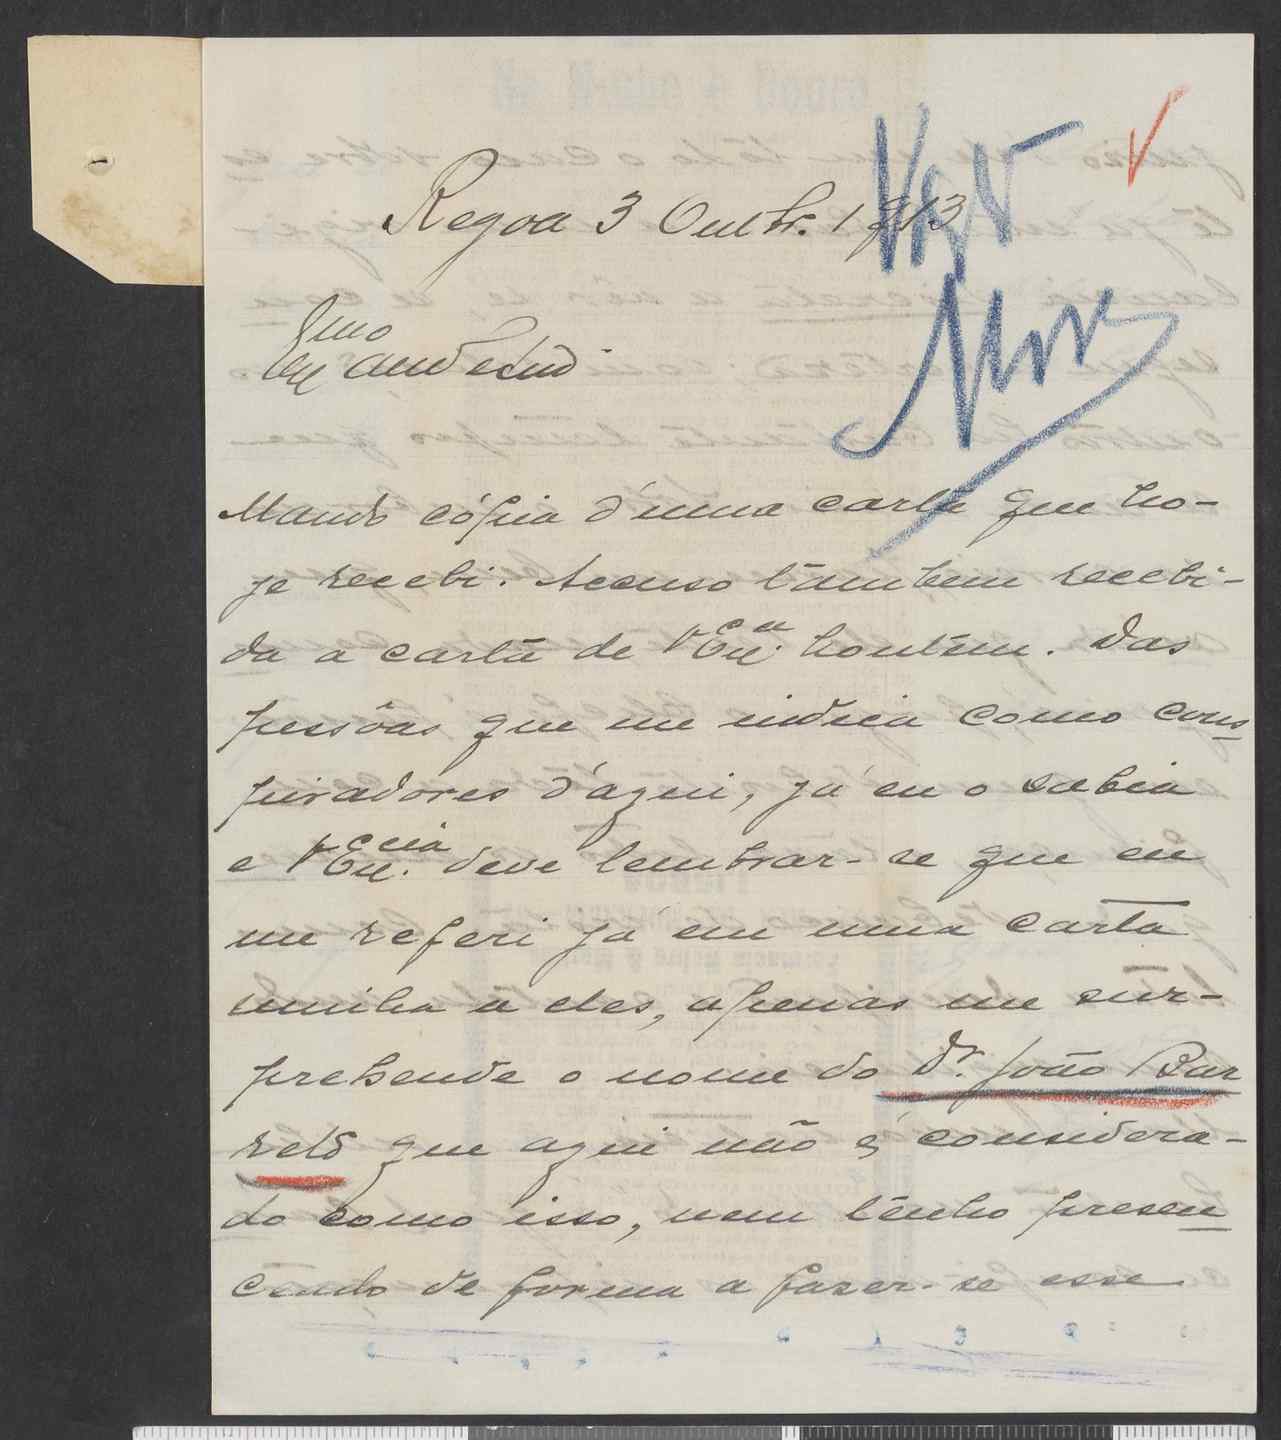 Regoa 3 Outbr. 1913
Mando cópia d'uma carta que ho-
je recebi. Accuso tambem recebi-
da a carta de V Ex.cia hontem. Das
pessôas que me indica como cons
piradores d'aqui, já eu o sabia
e V Ex.cia deve lembrar-se que eu
me referi já em uma carta
minha a eles, apenas me sur-
prehende o nome do Dr. João Bar
reto que aqui não é considera-
do como isso, nem tenho presen
ceado de forma a fazer-se esse